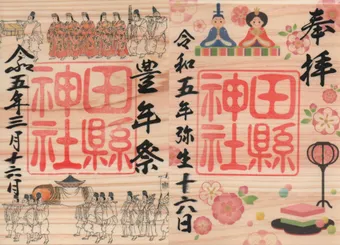 奉拝
田縣神社
令和五年弥生十六日
豊年祭
田縣神社
令和五年三月十六日